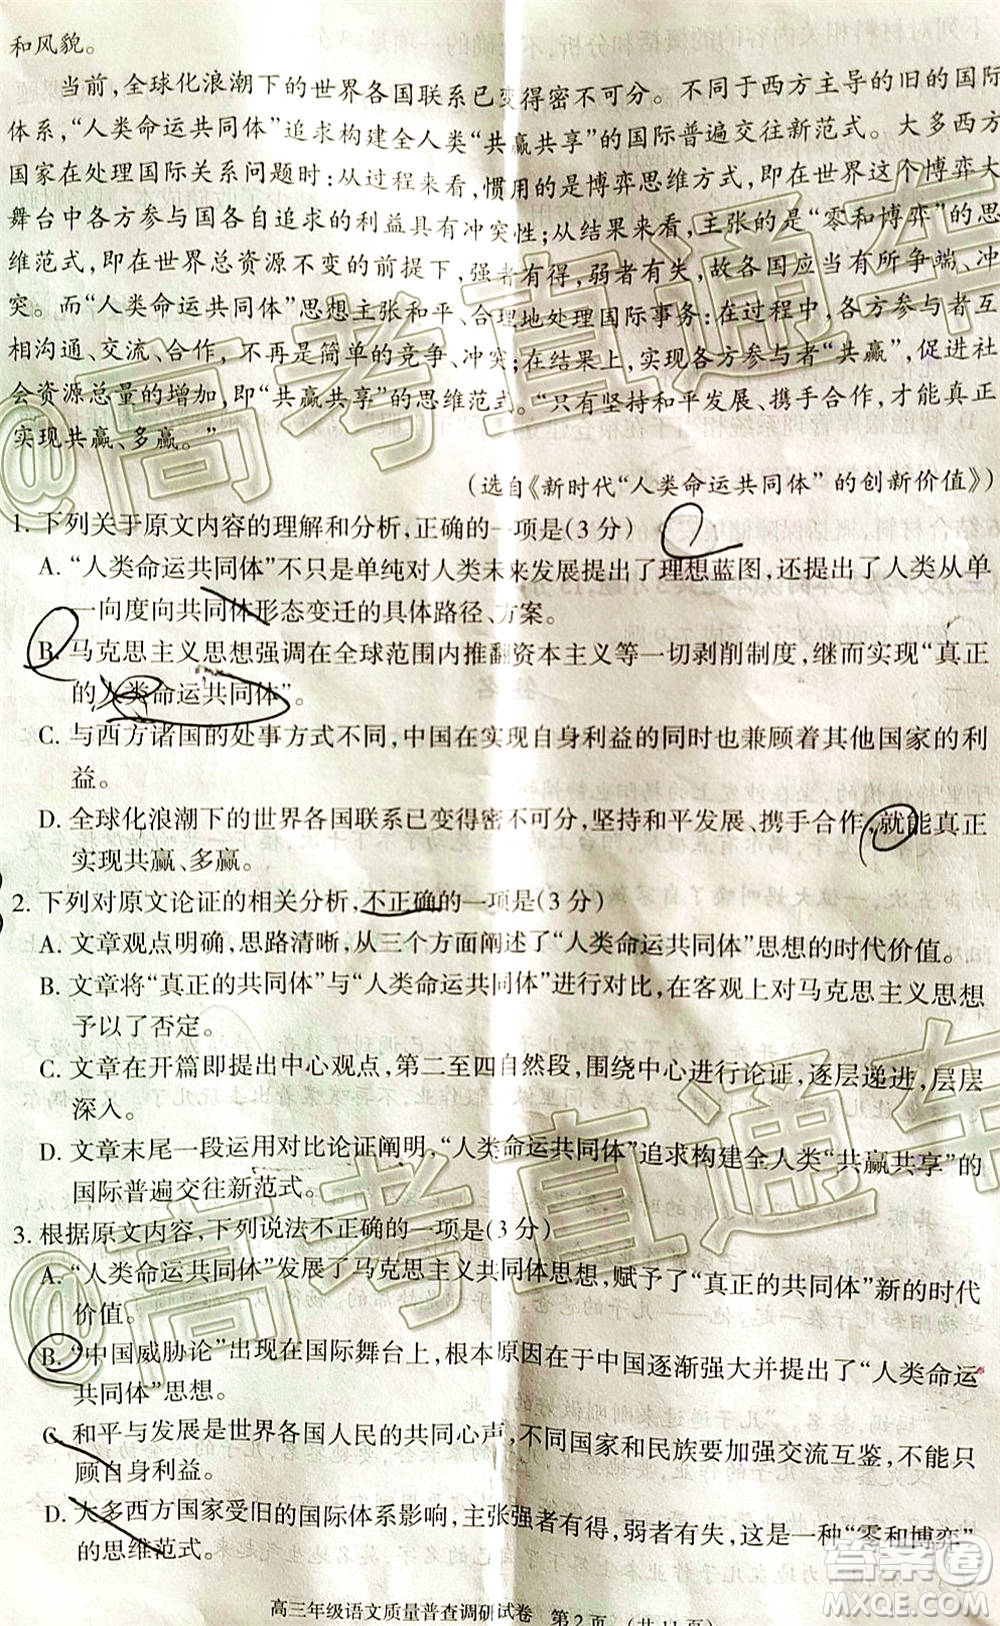 和风貌。
当前,全球化浪潮下的世界各国联系已变得密不可分。不同于西方主导的旧的国际
体系,“人类命运共同体”追求构建全人类“共赢共享”的国际普遍交往新范式。大多西方
国家在处理国际关系问题时:从过程来看,惯用的是博弈思维方式,即在世界这个博弈大
舞台中各方参与国各自追求的利益具有冲突性;从结果来看,主张的是“零和博弈”的思
维范式,即在世界总资源不变的前提下,强者有得,弱者有失,故各国应当有所争端、冲
突。而“人类命运共同体”思想主张和平、合理地处理国际事务:在过程中,各方参与者互
相沟通、交流、合作,不再是简单的竞争、冲突;在结果上,实现各方参与者“共赢”,促进社
会资源总量的增加,即“共赢共享”的思维范式。“只有坚持和平发展、携手合作,才能真正
实现共赢、多赢。”
(选自《新时代“人类命运共同体”的创新价值》)
1. 下列关于原文内容的理解和分析,正确的一项是(3分)
A. “人类命运共同体”不只是单纯对人类未来发展提出了理想蓝图,还提出了人类从单
一向度向共同体形态变迁的具体路径、方案。
B. 马克思主义思想强调在全球范围内推翻资本主义等一切剥削制度,继而实现“真正
的人类命运共同体”。
C. 与西方诸国的处事方式不同,中国在实现自身利益的同时也兼顾着其他国家的利
益。
D. 全球化浪潮下的世界各国联系已变得密不可分,坚持和平发展、携手合作,就能真正
实现共赢、多赢。
2. 下列对原文论证的相关分析,不正确的一项是(3分)
A. 文章观点明确,思路清晰,从三个方面阐述了“人类命运共同体”思想的时代价值。
B. 文章将“真正的共同体”与“人类命运共同体”进行对比,在客观上对马克思主义思想
予以了否定。
C. 文章在开篇即提出中心观点,第二至四自然段,围绕中心进行论证,逐层递进,层层
深入。
D. 文章末尾一段运用对比论证阐明,“人类命运共同体”追求构建全人类“共赢共享”的
国际普遍交往新范式。
3. 根据原文内容,下列说法不正确的一项是(3分)
A. “人类命运共同体”发展了马克思主义共同体思想,赋予了“真正的共同体”新的时代
价值。
B. “中国威胁论”出现在国际舞台上,根本原因在于中国逐渐强大并提出了“人类命运
共同体”思想。
C. 和平与发展是世界各国人民的共同心声,不同国家和民族要加强交流互鉴,不能只
顾自身利益。
D. 大多西方国家受旧的国际体系影响,主张强者有得,弱者有失,这是一种“零和博弈”
的思维范式。
高三年级语文质量普查调研试卷 第2页 (共11页)
@高考直通车
@高考直通车
答案圈
MXQE.COM